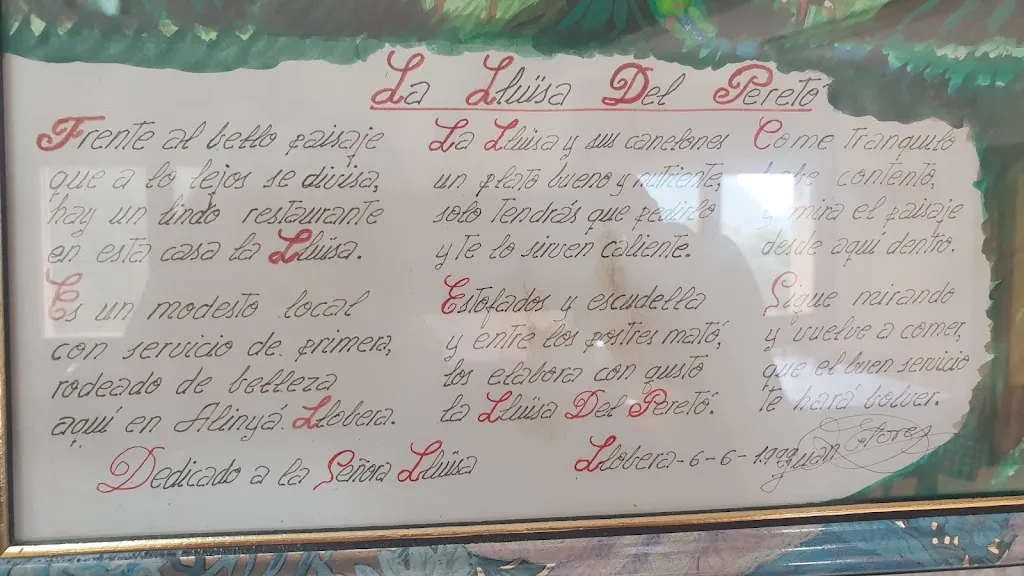 La Lluïsa Del Peretó
Frente al bello paisaje
que a lo lejos se divisa,
hay un lindo restaurante
en esta casa la Lluïsa.
Es un modesto local
con servicio de primera,
rodeado de belleza
aquí en Alinyá. Llobera.
La Lluïsa y sus canelones
un plato bueno y nutriente,
solo tendrás que pedirlo
y te lo sirven caliente.
Estofados y escudella
y entre los postres mató,
los elabora con gusto
la Lluïsa Del Peretó.
Come tranquilo
bebe contento,
y mira el paisaje
desde aquí dentro.
Sigue mirando
y vuelve a comer,
que el buen servicio
te hará bolver.
Dedicado a la Señora Lluïsa
Llobera-6-6-1.999
Juan